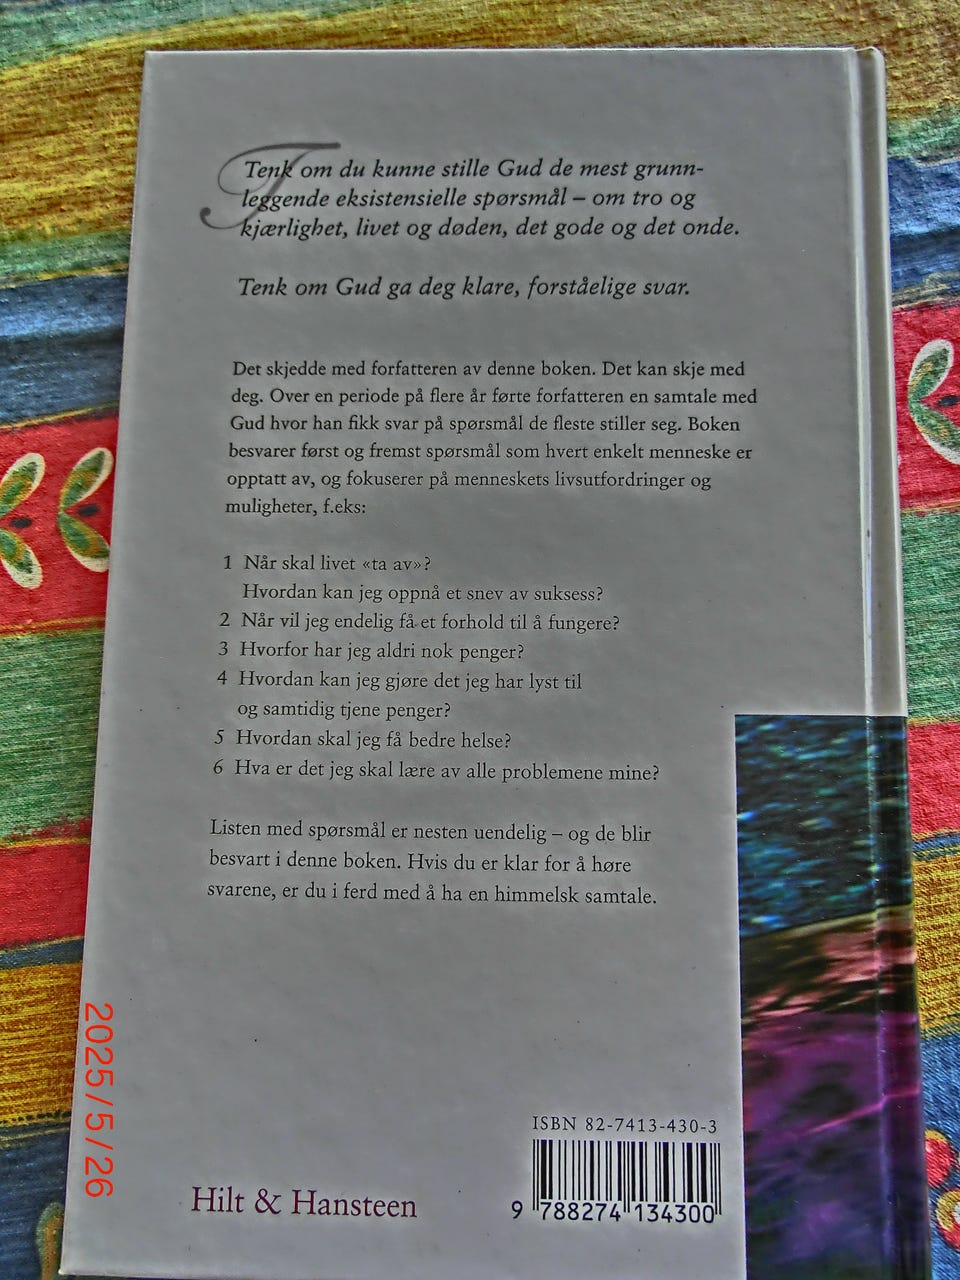 Tenk om du kunne stille Gud de mest grunn-
leggende eksistensielle spørsmål – om tro og
kjærlighet, livet og døden, det gode og det onde.
Tenk om Gud ga deg klare, forståelige svar.
Det skjedde med forfatteren av denne boken. Det kan skje med
deg. Over en periode på flere år førte forfatteren en samtale med
Gud hvor han fikk svar på spørsmål de fleste stiller seg. Boken
besvarer først og fremst spørsmål som hvert enkelt menneske er
opptatt av, og fokuserer på menneskets livsutfordringer og
muligheter, f.eks:
1 Når skal livet «ta av»?
Hvordan kan jeg oppnå et snev av suksess?
2 Når vil jeg endelig få et forhold til å fungere?
3 Hvorfor har jeg aldri nok penger?
4 Hvordan kan jeg gjøre det jeg har lyst til
og samtidig tjene penger?
5 Hvordan skal jeg få bedre helse?
6 Hva er det jeg skal lære av alle problemene mine?
Listen med spørsmål er nesten uendelig – og de blir
besvart i denne boken. Hvis du er klar for å høre
svarene, er du i ferd med å ha en himmelsk samtale.
ISBN 82-7413-430-3
9 788274 134300
Hilt & Hansteen
2025/5/26